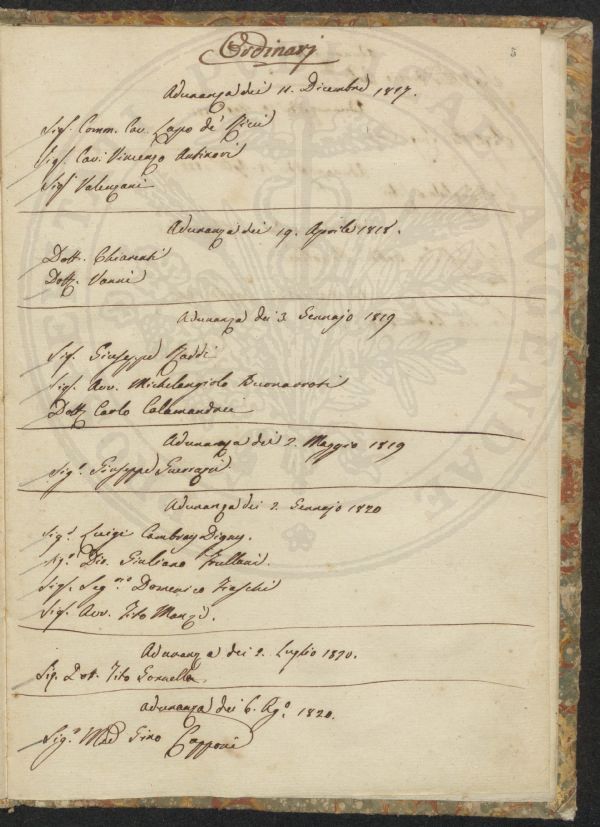 Ordinarj
5
Adunanza dei 11. Dicembre 1817.
Sigf. Comm. Cav. Lapo de' Ricci
Sigf. Cav. Vincenzo Antinori
Sigf Valenzani
Adunanza dei 19. Aprile 1818.
Dott. Chiarenti
Dott. Vanni
Adunanza dei 3. Gennajo 1819
Sif. Giuseppe Raddi
Sigf. Avv. Michelangiolo Buonarroti
Dott. Carlo Calamandrei
Adunanza dei 2. Maggio 1819
Sig.r Giuseppe Guerrazzi
Adunanza dei 2. Gennajo 1820
Sig.r Luigi Cambray Digny.
Giuliano Frullani.
Sigf. Seg.rio Domenico
Sigf. Avv. Tito Manzi.
Adunanza dei 2. Luglio 1820.
Sig. Dott. Tito
Adunanza dei 6. Ag.o 1820.
Sig.r Gino Capponi